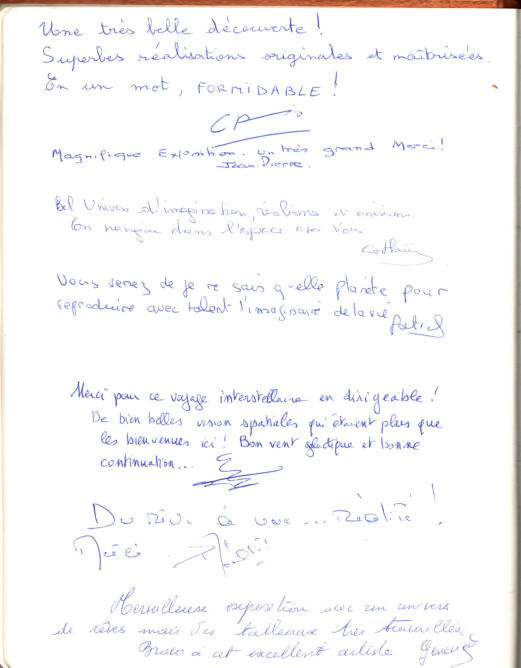 Une très belle découverte !
Superbes réalisations originales et maîtrisées.
En un mot, FORMIDABLE !
Magnifique Exposition. un très grand Merci !
Jean-Pierre.
Bel Univers d'imagination, réalisme et onirisme.
On navigue dans l'espace avec Vous
Vous venez de je ne sais quelle planète pour
reproduire avec talent l'imaginaire de la vie
Merci pour ce voyage interstellaire en dirigeable !
De bien belles vision spatiales qui étaient plus que
les bienvenues ici ! Bon vent galactique et bonne
continuation...
Du rêve à une ... réalité !
Merveilleuse exposition avec un univers
de rêves mais des tableaux très travaillés.
Bravo à cet excellent artiste